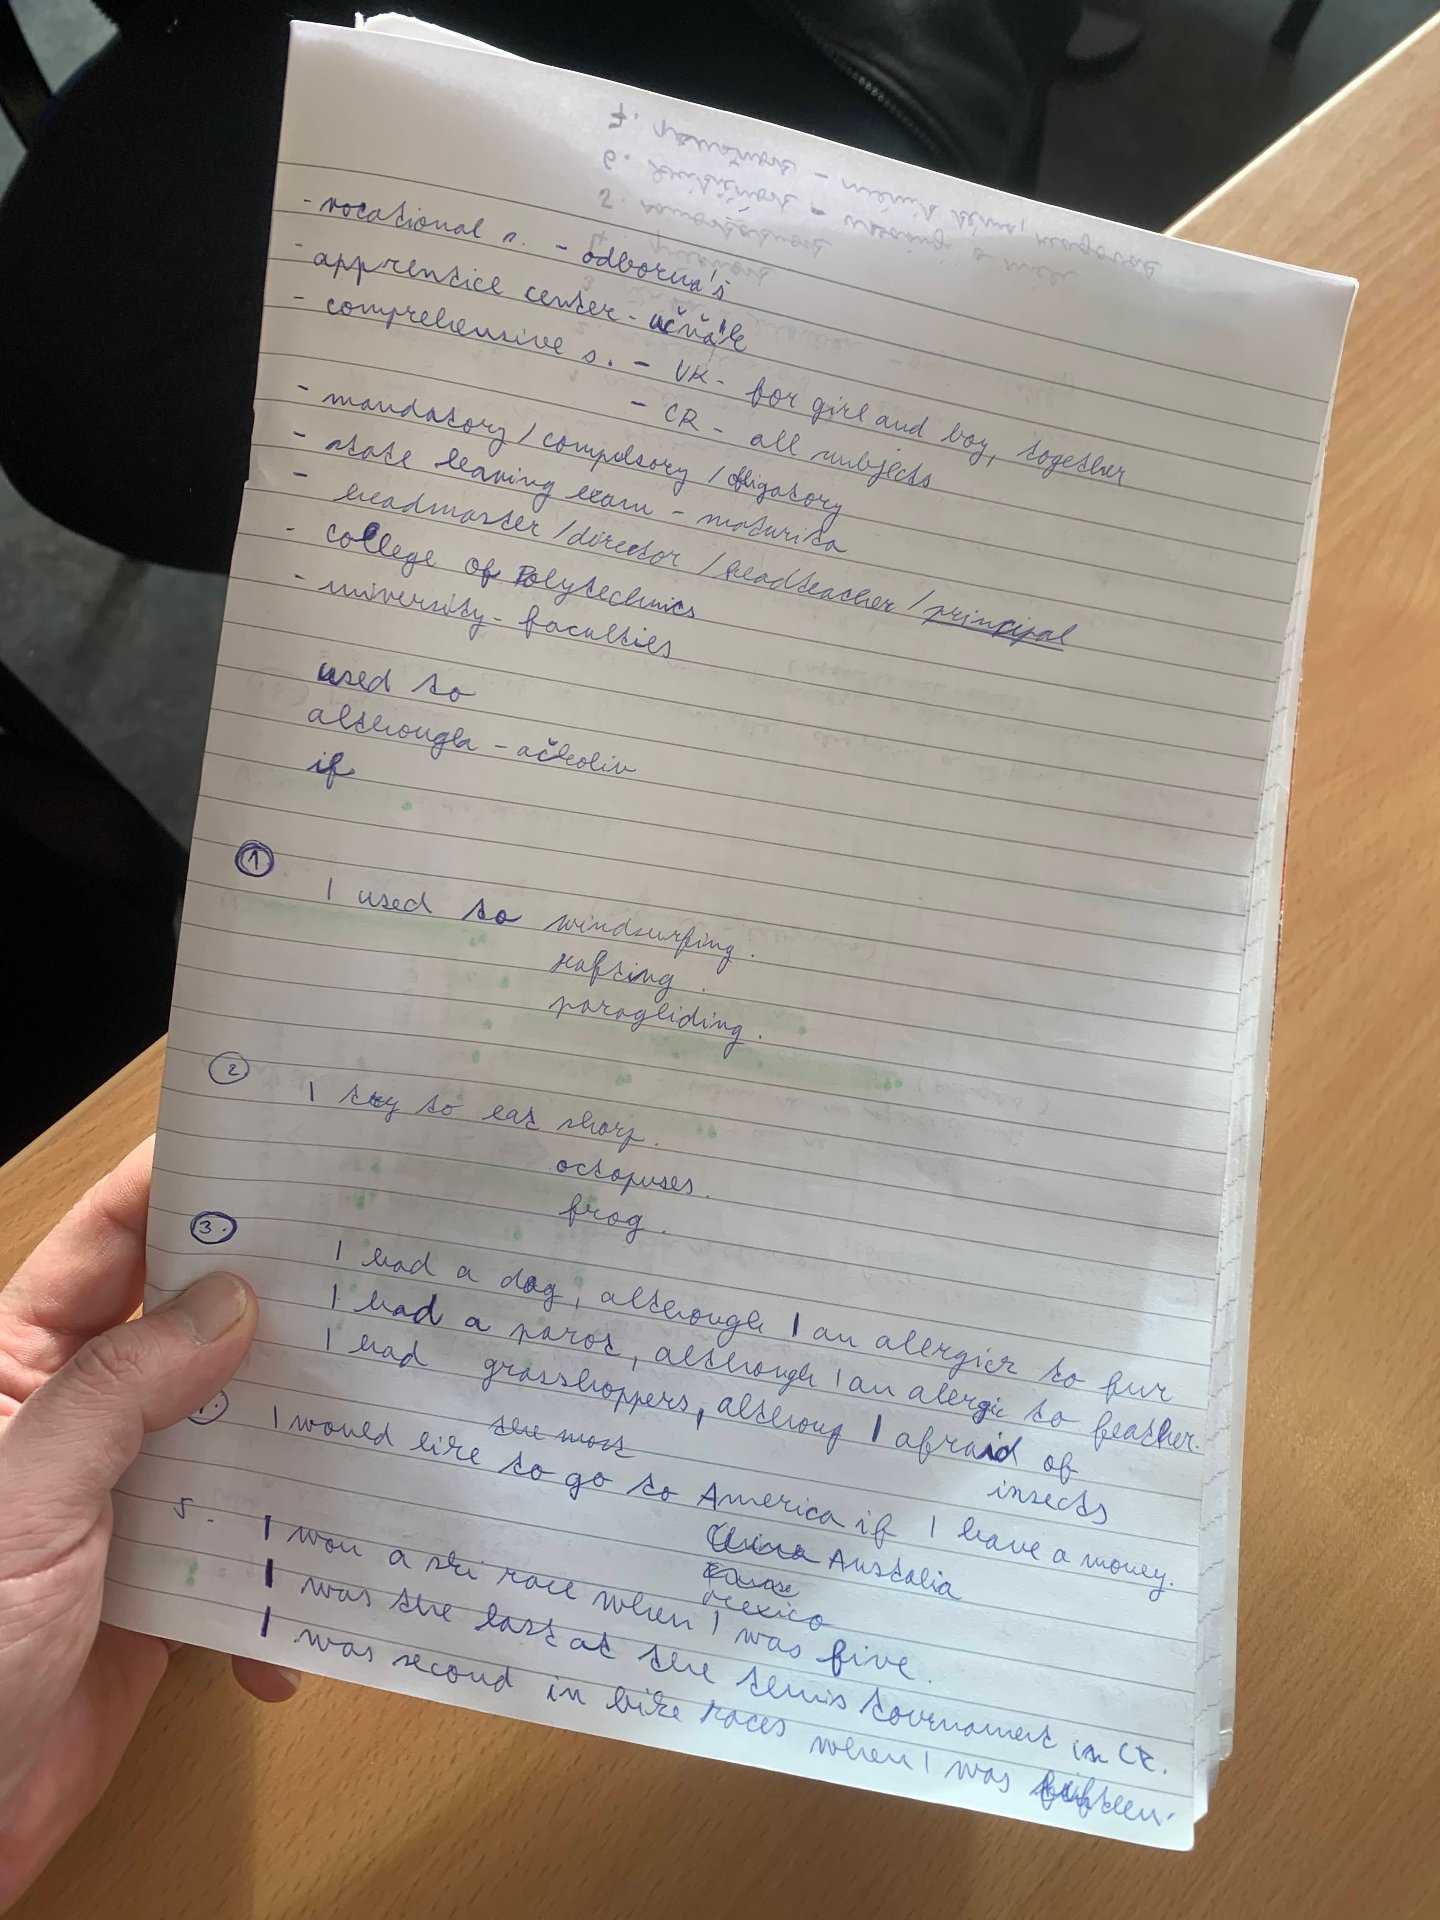 - vocational s. - odborná š
- apprentice center - učňák
- comprehensive s. - UK - for girl and boy, together
- CR - all subjects
- mandatory / compulsory / obligatory
- state leaving exam - maturita
- headmaster / director / headteacher / principal
- college of Polytechnics
- university - faculties
used to
although - ačkoliv
if
1
I used to windsurfing.
rafting.
paragliding.
2
I try to eat sharp.
octopuses.
frog.
3.
I had a dog, although I an allergict to fur
I had a parot, although I an alergic to feather.
I had grasshoppers, althoug I afraid of
insects
the most
I would like to go to America if I have a money.
China Australia
Mexico
5. I won a ski race when I was five.
I was the last at the tennis tournament in CR.
I was second in bike races when I was fifteen.